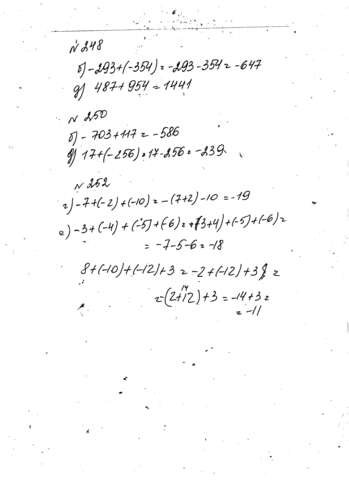 №248
б) -293+(-354)=-293-354=-647
д) 487+954=1441
№250
б) -703+117=-586
д) 17+(-256)=17-256=-239
№252
г) -7+(-2)+(-10)=-(7+2)-10=-19
е) -3+(-4)+(-5)+(-6)=-(3+4)+(-5)+(-6)=
=-7-5-6=-18
8+(-10)+(-12)+3=-2+(-12)+3=
14
=-(2+12)+3=-14+3=
=-11